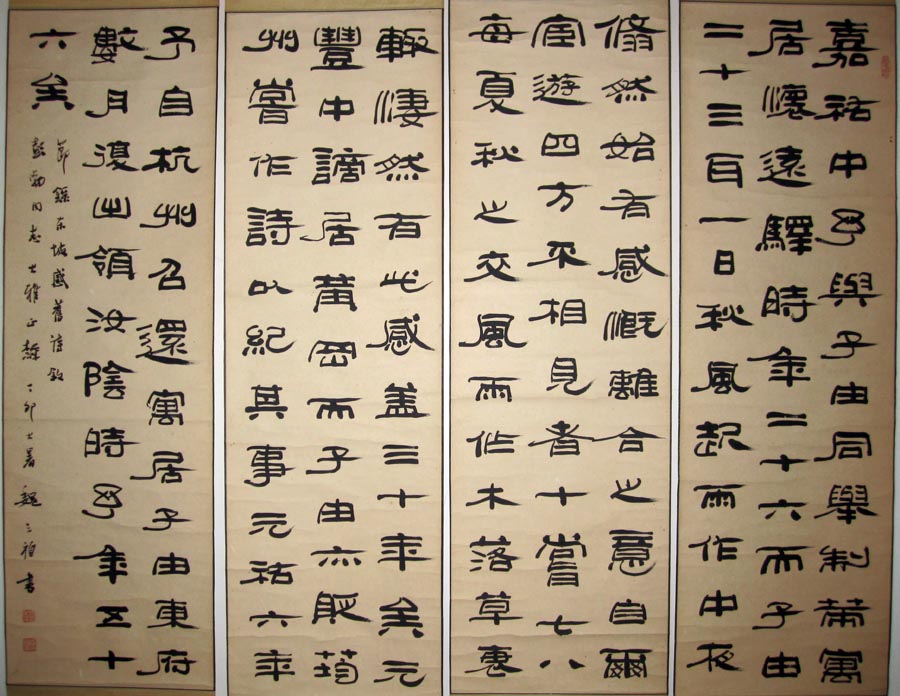 嘉祐中予與子由同舉制策寓
居懷遠驛時年二十六而子由
二十三耳一日秋風起雨作中夜
翛然始有感慨離合之意自爾
宦遊四方不相見者十嘗七八
每夏秋之交風雨作木落草衰
輒淒然有此感盖三十年矣元
豐中謫居黄岡而子由亦貶筠
州嘗作詩以紀其事元祐六年
予自杭州召還寓居子由東府
數月復出領汝陰時予年五十
六矣
節錄東坡感舊詩敘
彭勃同志大雅正 丁卯大暑魏之禎書